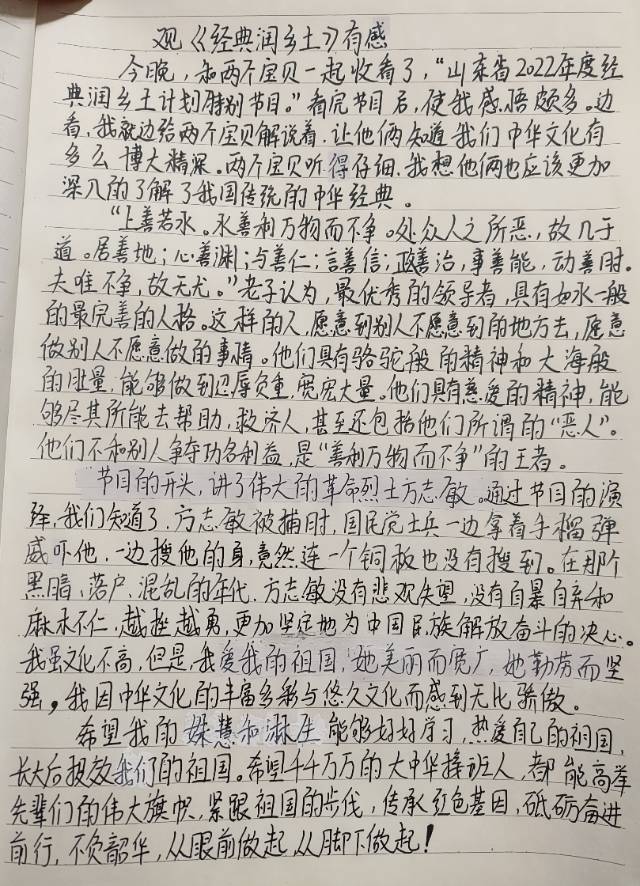 观《经典润乡土》有感
今晚，和两个宝贝一起收看了，“山东省2022年度经
典润乡土计划特别节目。”看完节目后，使我感悟颇多。边
看，我就边给两个宝贝解说着，让他俩知道我们中华文化有
多么博大精深。两个宝贝听得仔细，我想他俩也应该更加
深入的了解了我国传统的中华经典。
“上善若水。水善利万物而不争。处众人之所恶，故几于
道。居善地；心善渊；与善仁；言善信；政善治，事善能，动善时。
夫唯不争，故无尤。”老子认为，最优秀的领导者，具有如水一般
的最完善的人格。这样的人，愿意到别人不愿意到的地方去，愿意
做别人不愿意做的事情。他们具有骆驼般的精神和大海般
的肚量，能够做到忍辱负重，宽宏大量。他们具有慈爱的精神，能
够尽其所能去帮助，救济人，甚至还包括他们所谓的“恶人”。
他们不和别人争夺功名利益，是“善利万物而不争”的王者。
节目的开头，讲了伟大的革命烈士方志敏。通过节目的演
绎，我们知道了，方志敏被捕时，国民党士兵一边拿着手榴弹
威吓他，一边搜他的身，竟然连一个铜板也没有搜到。在那个
黑暗、落户、混乱的年代，方志敏没有悲观失望，没有自暴自弃和
麻木不仁，越挫越勇，更加坚定地为中国民族解放奋斗的决心。
我虽文化不高，但是，我爱我的祖国，她美丽而宽广，她勤劳而坚
强，我因中华文化的丰富多彩与悠久文化而感到无比骄傲。
希望我的姝慧和淋生能够好好学习，热爱自己的祖国，
长大后报效我们的祖国。希望千千万万的大中华接班人，都能高举
先辈们的伟大旗帜，紧跟祖国的步伐，传承红色基因，砥砺奋进
前行，不负韶华，从眼前做起，从脚下做起！